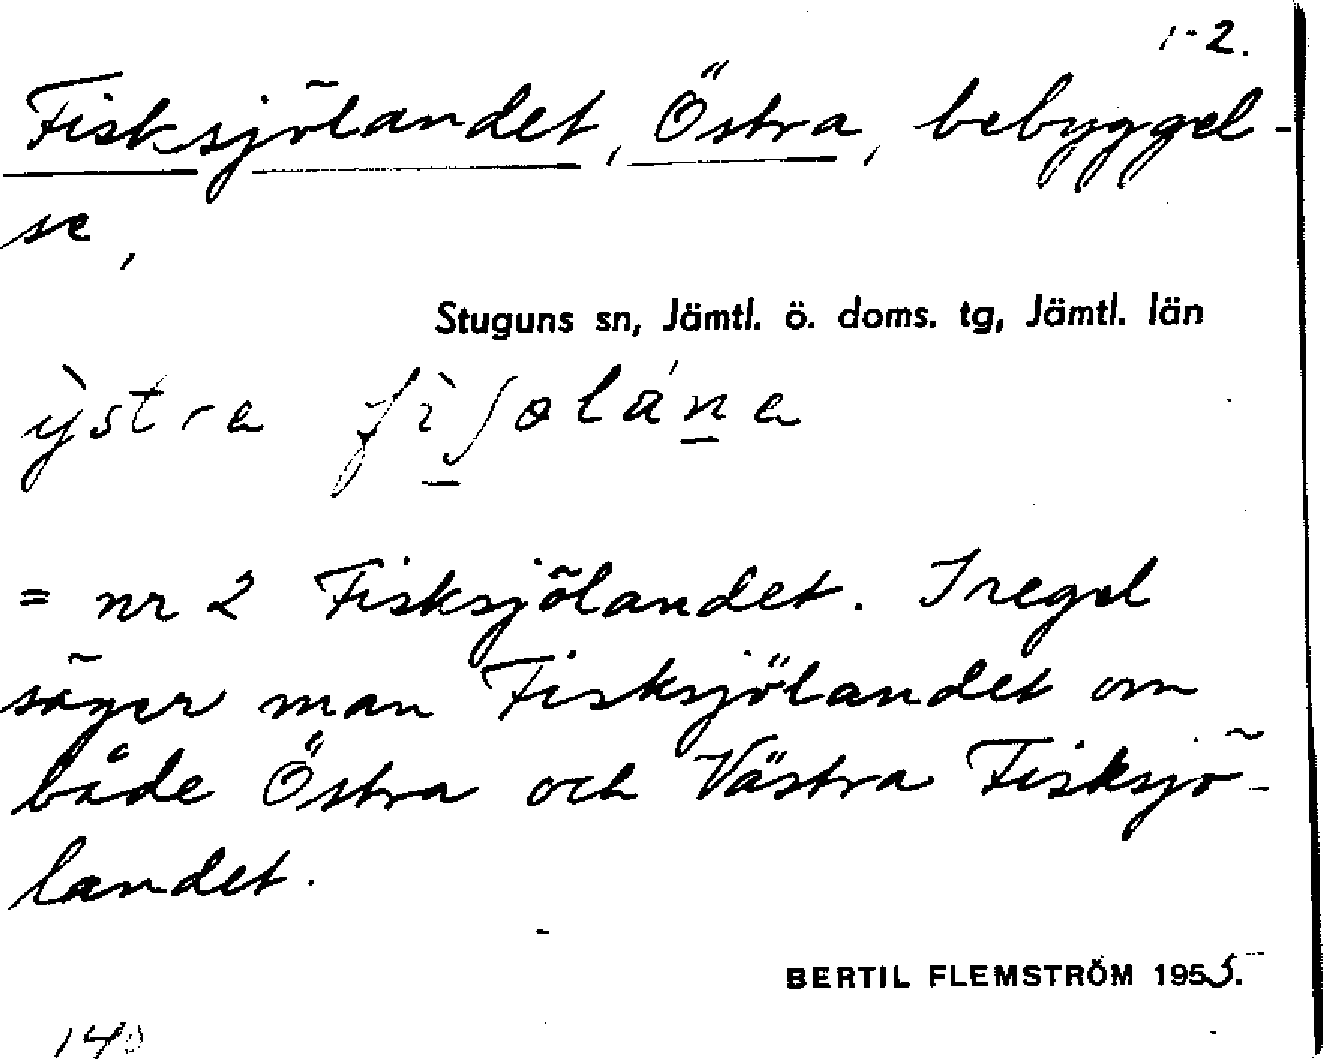 1-2.
Fisksjölandet, Östra, bebyggel-
se,
Stuguns sn, Jämtl. ö. doms. tg, Jämtl. län
ỳstra fìʃolána
= nr 2 Fisksjölandet. I regel
säger man Fisksjölandet om
både Östra och Västra Fisksjö-
landet.
BERTIL FLEMSTRÖM 1955.
140